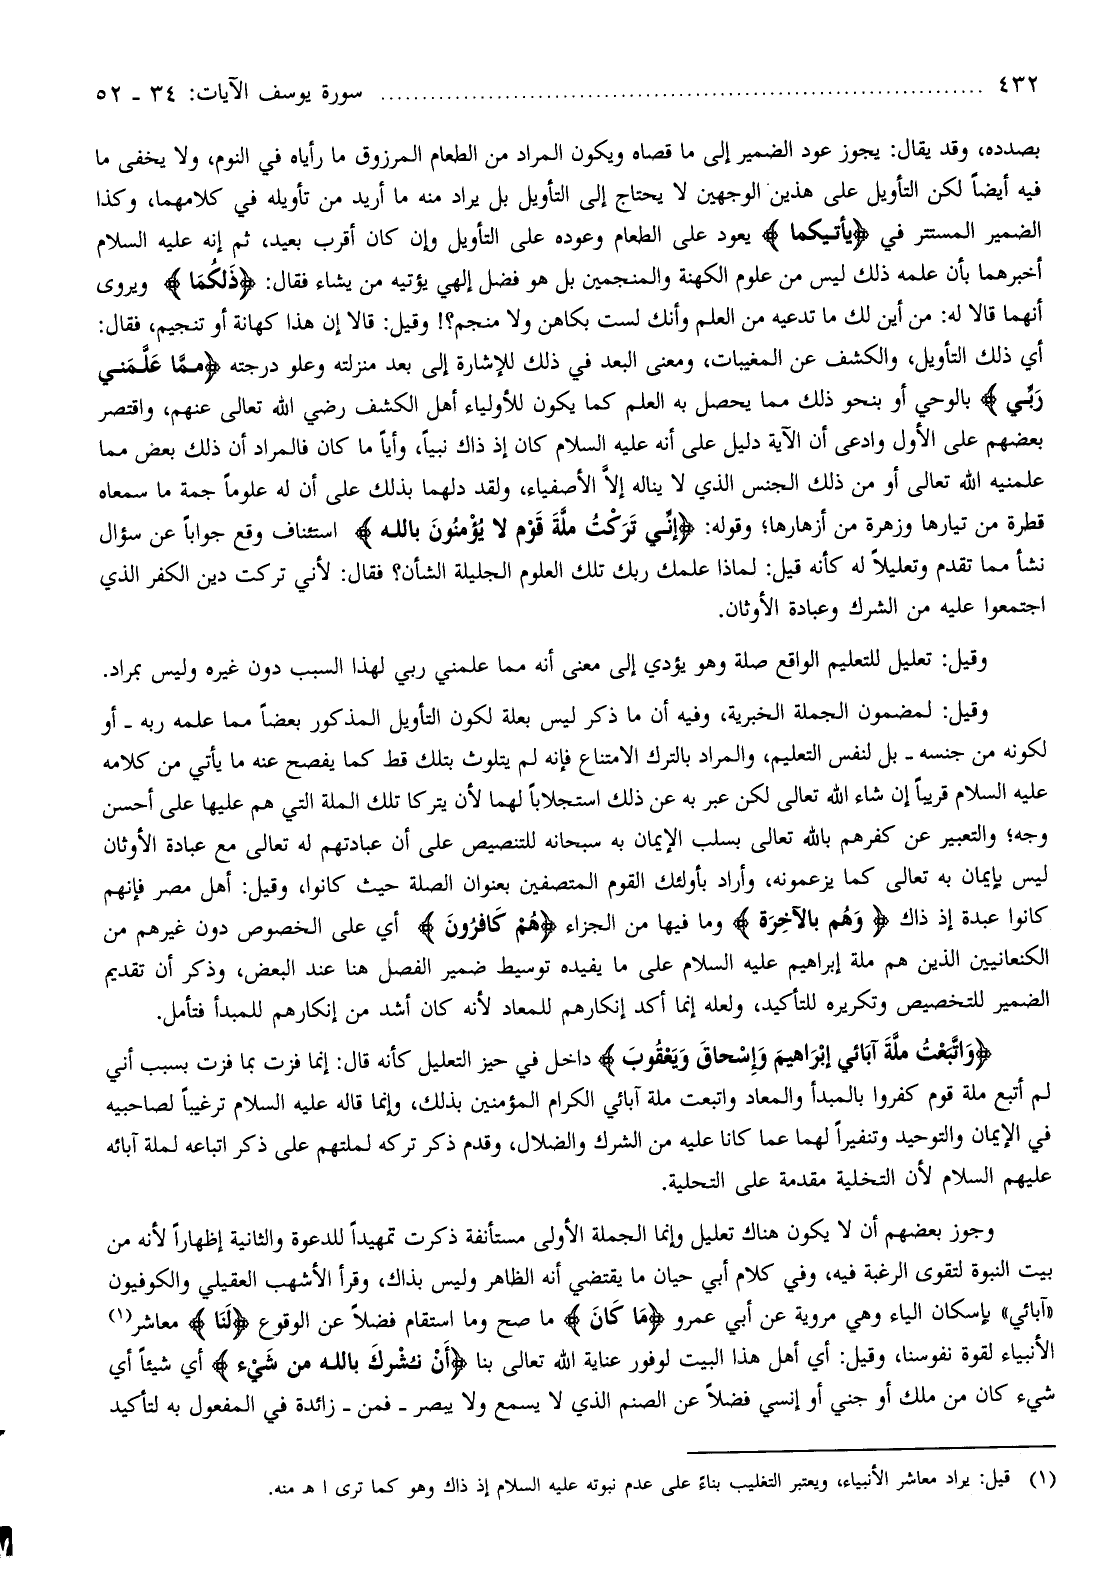 ٤٣٢ ........................................ سورة يوسف الآيات: ٣٤ ـ ٥٢
بصدده، وقد يقال: يجوز عود الضمير إلى ما قصاه ويكون المراد من الطعام المرزوق ما رأياه في النوم، ولا يخفى ما
فيه أيضاً لكن التأويل على هذين الوجهين لا يحتاج إلى التأويل بل يراد منه ما أريد من تأويله في كلامهما، وكذا
الضمير المستتر في ﴿يأتيكما﴾ يعود على الطعام وعوده على التأويل وإن كان أقرب بعيد، ثم إنه عليه السلام
أخبرهما بأن علمه ذلك ليس من علوم الكهنة والمنجمين بل هو فضل إلهي يؤتيه من يشاء فقال: ﴿ذَلكُمَا﴾ ويروى
أنهما قالا له: من أين لك ما تدعيه من العلم وأنك لست بكاهن ولا منجم؟! وقيل: قالا إن هذا كهانة أو تنجيم، فقال:
أي ذلك التأويل، والكشف عن المغيبات، ومعنى البعد في ذلك للإشارة إلى بعد منزلته وعلو درجته ﴿ممَّا عَلَّمَني
رَبِّي﴾ بالوحي أو بنحو ذلك مما يحصل به العلم كما يكون للأولياء أهل الكشف رضي الله تعالى عنهم، واقتصر
بعضهم على الأول وادعى أن الآية دليل على أنه عليه السلام كان إذ ذاك نبياً، وأياً ما كان فالمراد أن ذلك بعض مما
علمنيه الله تعالى أو من ذلك الجنس الذي لا يناله إلاَّ الأصفياء، ولقد دلهما بذلك على أن له علوماً جمة ما سمعاه
قطرة من تيارها وزهرة من أزهارها؛ وقوله: ﴿إنِّي تَرَكْتُ ملَّةَ قَوْم لا يُؤْمنُونَ بالله﴾ استئناف وقع جواباً عن سؤال
نشأ مما تقدم وتعليلاً له كأنه قيل: لماذا علمك ربك تلك العلوم الجليلة الشأن؟ فقال: لأني تركت دين الكفر الذي
اجتمعوا عليه من الشرك وعبادة الأوثان.
وقيل: تعليل للتعليم الواقع صلة وهو يؤدي إلى معنى أنه مما علمني ربي لهذا السبب دون غيره وليس بمراد.
وقيل: لمضمون الجملة الخبرية، وفيه أن ما ذكر ليس بعلة لكون التأويل المذكور بعضاً مما علمه ربه ـ أو
لكونه من جنسه ـ بل لنفس التعليم، والمراد بالترك الامتناع فإنه لم يتلوث بتلك قط كما يفصح عنه ما يأتي من كلامه
عليه السلام قريباً إن شاء الله تعالى لكن عبر به عن ذلك استجلاباً لهما لأن يتركا تلك الملة التي هم عليها على أحسن
وجه؛ والتعبير عن كفرهم بالله تعالى بسلب الإيمان به سبحانه للتنصيص على أن عبادتهم له تعالى مع عبادة الأوثان
ليس بإيمان به تعالى كما يزعمونه، وأراد بأولئك القوم المتصفين بعنوان الصلة حيث كانوا، وقيل: أهل مصر فإنهم
كانوا عبدة إذ ذاك ﴿وَهُم بالآخِرَة﴾ وما فيها من الجزاء ﴿هُمْ كَافرُونَ﴾ أي على الخصوص دون غيرهم من
الكنعانيين الذين هم ملة إبراهيم عليه السلام على ما يفيده توسيط ضمير الفصل هنا عند البعض، وذكر أن تقديم
الضمير للتخصيص وتكريره للتأكيد، ولعله إنما أكد إنكارهم للمعاد لأنه كان أشد من إنكارهم للمبدأ فتأمل.
﴿وَاتَّبَعْتُ ملَّةَ آبَائي إبْرَاهيمَ وَإسْحاقَ وَيَعْقُوبَ﴾ داخل في حيز التعليل كأنه قال: إنما فزت بما فزت بسبب أني
لم أتبع ملة قوم كفروا بالمبدأ والمعاد واتبعت ملة آبائي الكرام المؤمنين بذلك، وإنما قاله عليه السلام ترغيباً لصاحبيه
في الإيمان والتوحيد وتنفيراً لهما عما كانا عليه من الشرك والضلال، وقدم ذكر تركه لملتهم على ذكر اتباعه لملة آبائه
عليهم السلام لأن التخلية مقدمة على التحلية.
وجوز بعضهم أن لا يكون هناك تعليل وإنما الجملة الأولى مستأنفة ذكرت تمهيداً للدعوة والثانية إظهاراً لأنه من
بيت النبوة لتقوى الرغبة فيه، وفي كلام أبي حيان ما يقتضي أنه الظاهر وليس بذاك، وقرأ الأشهب العقيلي والكوفيون
«آبائي» بإسكان الياء وهي مروية عن أبي عمرو ﴿مَا كَانَ﴾ ما صح وما استقام فضلاً عن الوقوع ﴿لَنَا﴾ معاشر(١)
الأنبياء لقوة نفوسنا، وقيل: أي أهل هذا البيت لوفور عناية الله تعالى بنا ﴿أَنْ نُشْركَ بالله من شَيْء﴾ أي شيئاً أي
شيء كان من ملك أو جني أو إنسي فضلاً عن الصنم الذي لا يسمع ولا يبصر ـ فمن ـ زائدة في المفعول به لتأكيد
(١) قيل: يراد معاشر الأنبياء، ويعتبر التغليب بناءً على عدم نبوته عليه السلام إذ ذاك وهو كما ترى ا هـ منه.